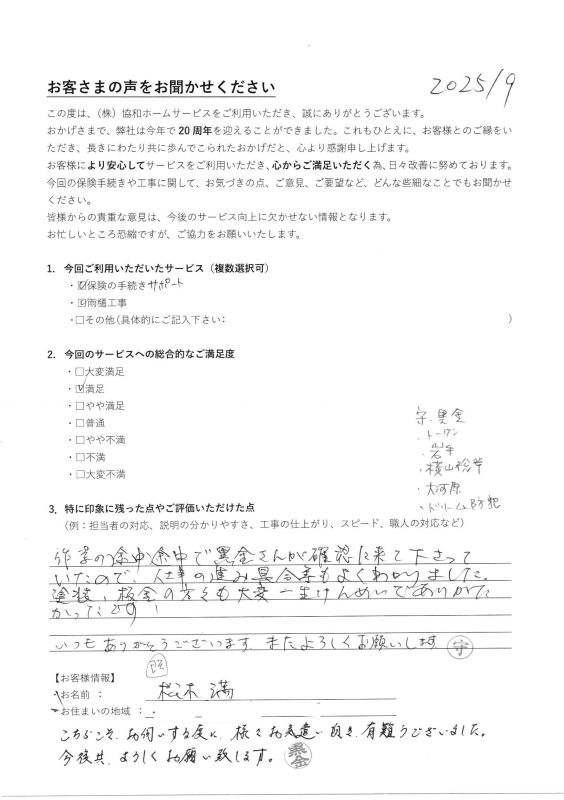 2025/9
お客さまの声をお聞かせください
この度は、（株）協和ホームサービスをご利用いただき、誠にありがとうございます。
おかげさまで、弊社は今年で 20 周年を迎えることができました。これもひとえに、お客様とのご縁をい
ただき、長きにわたり共に歩んでこられたおかげだと、心より感謝申し上げます。
お客様により安心してサービスをご利用いただき、心からご満足いただく為、日々改善に努めております。
今回の保険手続きや工事に関して、お気づきの点、ご意見、ご要望など、どんな些細なことでもお聞かせ
ください。
皆様からの貴重な意見は、今後のサービス向上に欠かせない情報となります。
お忙しいところ恐縮ですが、ご協力をお願いいたします。
1. 今回ご利用いただいたサービス（複数選択可）
・☑保険の手続きサポート
・☑雨樋工事
・□その他（具体的にご記入下さい： ）
2. 今回のサービスへの総合的なご満足度
・□大変満足
・☑満足
・□やや満足
・□普通
・□やや不満
・□不満
・□大変不満
守、黒金
・トーワン
・岩手
・横山
・大河原
・ドリーム防犯
3. 特に印象に残った点やご評価いただけた点
（例：担当者の対応、説明の分かりやすさ、工事の仕上がり、スピード、職人の対応など）
作業の途中途中で黒金さんが確認に来て下さって
いたので、仕事の進み具合等もよくわかりました。
塗装、板金の方々も大変一生けんめいでありがた
かったです！
いつもありがとうございます。またよろしくお願いします。 守
【お客様情報】
お名前 ： 松木 満
お住まいの地域 ：
こちらこそ、お伺いする度に、様々お気遣い頂き、有難うございました。
今後共、よろしくお願い致します。 黒金